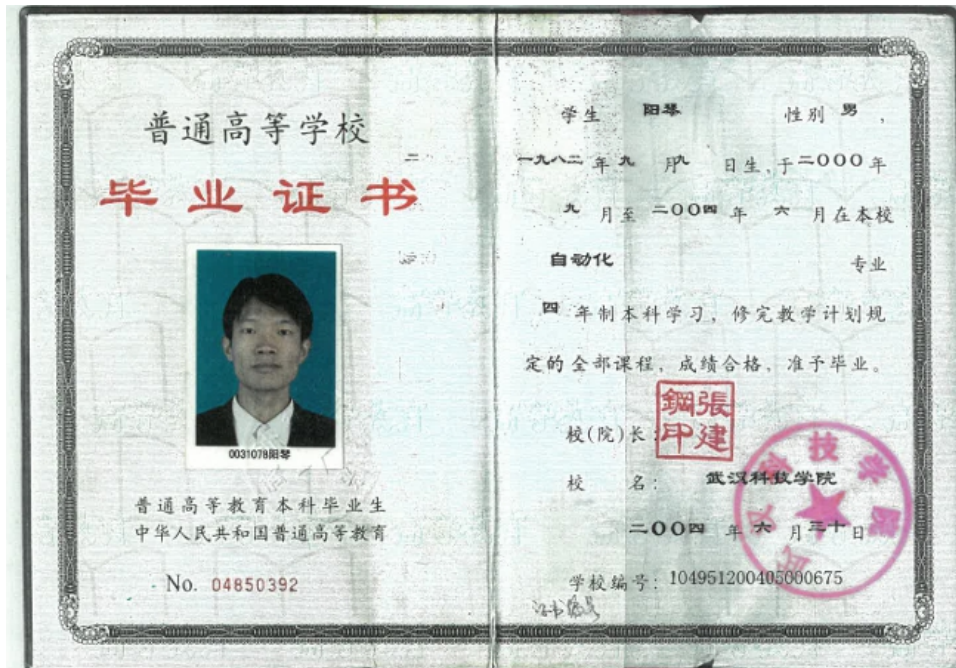 普通高等学校
毕业证书
0031078阳琴
普通高等教育本科毕业生
中华人民共和国普通高等教育
No. 04850392
学生 阳琴 性别 男，
一九八二 年 九 月 九 日生，于 二000 年
九 月至 二00四 年 六 月在本校
自动化 专业
四 年制本科学习，修完教学计划规
定的全部课程，成绩合格，准予毕业。
校(院)长：
張建鋼印
校 名： 武汉科技学院
二00四 年 六 月 三十 日
武汉科技学院
学校编号：104951200405000675